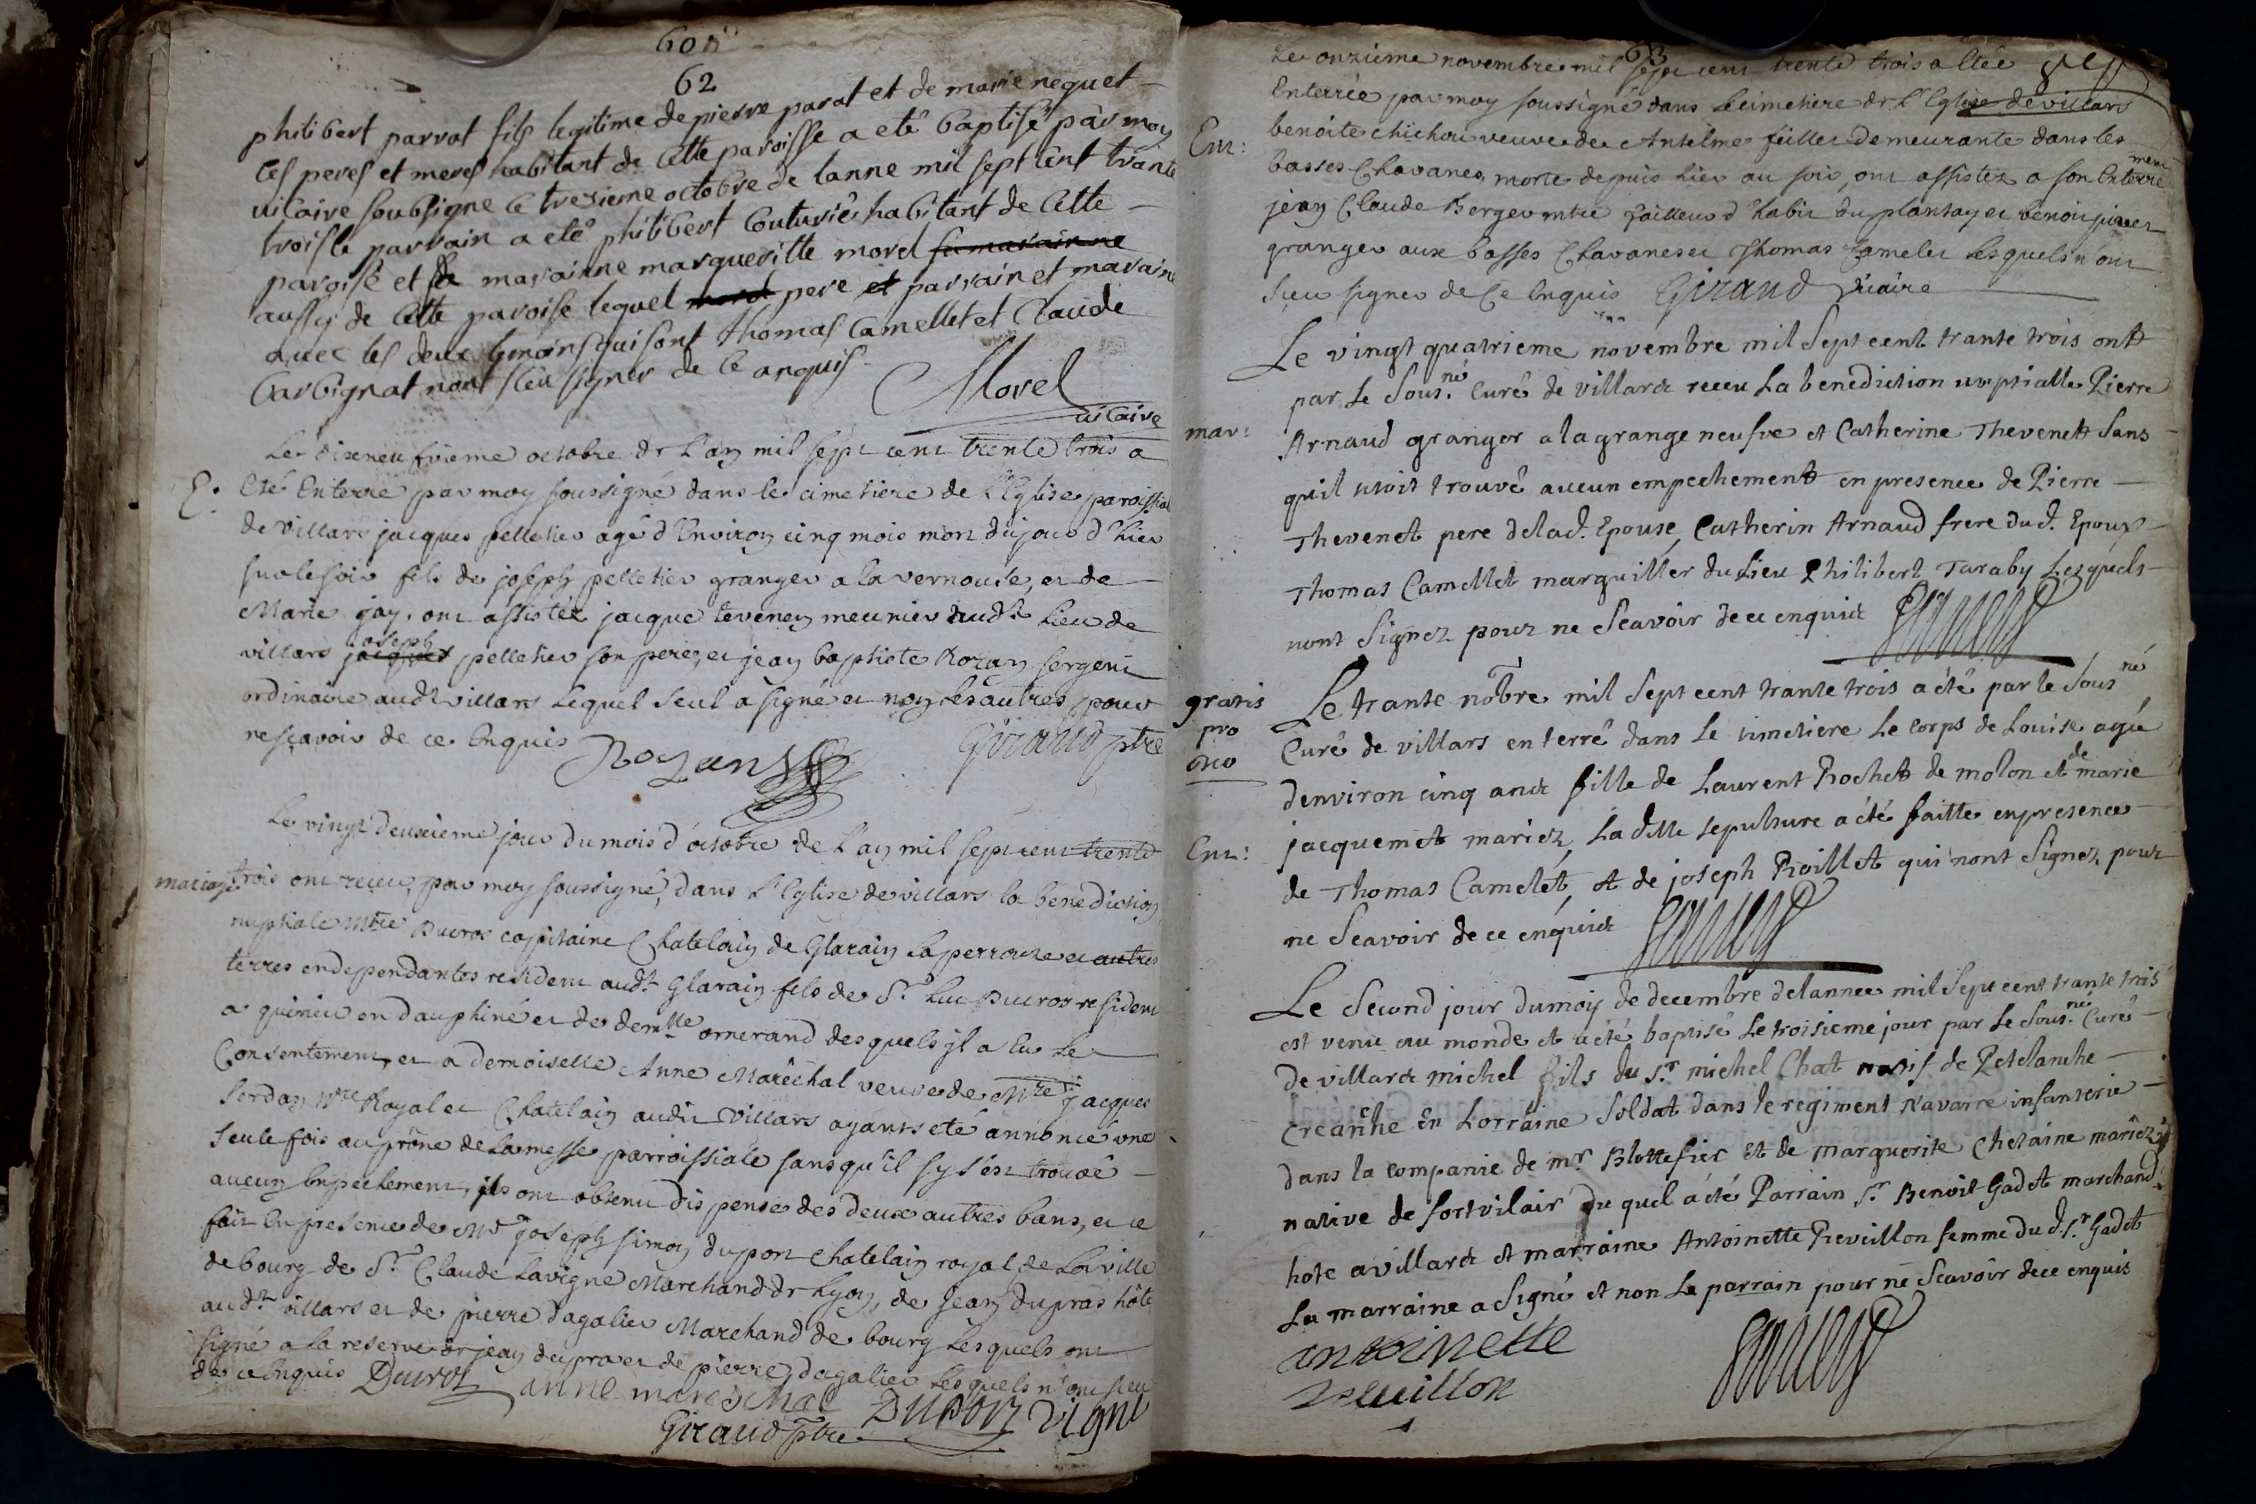 62
philibert parrot fils legitime de pierre parat et de marie nequet
ses peres et meres habitant de cette paroisse a eté baptise par moy
vicaire soubsigne le tresieme octobre de lanne mil sept cent trante
trois le parrain a eté philibert couturié habitant de cette
paroise et sa maraine margueritte morel sa maraine
aussy de cette paroise lequel morel pere et parrain et maraine
avec les deux temoins qui sont thomas Camellet et Claude
Carbignat nont sceu signer de ce anquis
Morel
vicaire
Le dixneufvieme octobre de L'an mil sept cent trente trois a
E. Eté Enterré par moy soussigné dans le cimetiere de L'Eglise paroissial
de villars jacques pelletier agé d'Environ cinq mois mort dujour d'hier
sur le soir fils de joseph pelletier granger a la vernouse, et de
Marie gay, ont assistéz jacque tevenen meunier audt Lieu de
joseph
villars jacques pelletier son pere, et jean baptiste Rozan sergent
ordinaire audt villars Lequel seul a signé et non Les autres pour
ne sçavoir de ce Enquis
Rozan
Giraud ptre
Le vingt deuxieme jour du mois d'octobre de L'an mil sept cent trente
mariage trois ont receu, par moy soussigné, dans L'Eglise de villars la benediction
nuptiale Mtre Ducros capitaine Chatelain de Glarain Laperrouse et autres
terres en dependantes resident audt Glarain fils de Sr Luc Ducros resident
a quirieu en dauphiné et de demlle ornerand desquels jl a Eu Le
Consentement, et a demoiselle Anne Maréchal veuve de Mtre jacques
Serdan Nre Royal et Chatelain audit villars ayants eté annoncé une
seule fois au prône de La messe parroissiale sans qu'il sy s'est trouvé
aucun Enpechement, jls ont obtenu dispense des deux autres bans, et ce
fait En presence de Mr joseph simon dupont chatelain royal de La ville
de bourg de Sr Claude Lavigne Marchand de Lyon, de jean dupras hôte
audt villars et de pierre dagalier Marchand de bourg Lesquels ont
signé a La reserve de jean dupra et de pierre dagalier Lesquels n'ont sceu
de ce Enquis Ducros anne marechal Dupont vigne
Giraud ptre
63
Le onzieme novembre mil sept cent trente trois a Etée
Enterrée par moy soussigné dans Le cimetiere de L'Eglise de villars
Ent: benoite chichou veuve de Antelme feillet demeurante dans les
basses Chavanes, morte depuis hier au soir, ont assistez a son Enterrement
jean Claude Berger mtre tailleur d'habit du plantay et benoit
granger aux basses Chavanes et Thomas Camelet Lesquels n'ont
sceu signer de Ce Enquis Giraud vicaire
Le vingt quatrieme novembre mil Sept cent trante trois ontt
par Le Sousné Curé de villard receu La benediction nuptialle Pierre
mar: Arnaud granger a la grange neufve et Catherine Thevenett Sans
quil ÿ soit trouvé aucun empechementt en presence de Pierre
Thevenet pere de lad. Epouse Catherin Arnaud frere dud. Epoux
Thomas Camellet marguillier du Lieu Philibert Taraby Lesquels
nont Signez pour ne Scavoir de ce enquict
gratis
pro
Deo
Le trante nobre mil Sept cent trante trois a été par le Sousné
Curé de villars enterré dans Le cimetiere Le corps de Louise agée
denviron cinq ans fille de Laurent Rochett de molon et de marie
Ent: jacquemet mariez, La ditte sepulture a été faitte en presence
de Thomas Camelét, et de joseph Roillet qui nont Signez pour
ne Scavoir de ce enquict
Le Second jour du moy de decembre de lannee mil Sept cent trante trois
est venu au monde et a été baptisé Le troisieme jour par Le Sousné Curé
de villard michel fils du Sr michel Chat natif de Petelanche
Creanhe En Lorraine Soldat dans le regiment Navarre infanterie
dans la companie de mr Blottefier et de marguerite Chelaine mariez
native de fortvilair Du quel a été Parrain Sr Benoit Gadet marchand
hote a villard et marraine Antoinette Reveillon femme dud. Sr Gadet
La marraine a Signé et non Le parrain pour ne Scavoir de ce enquis
antoinette
reveillon